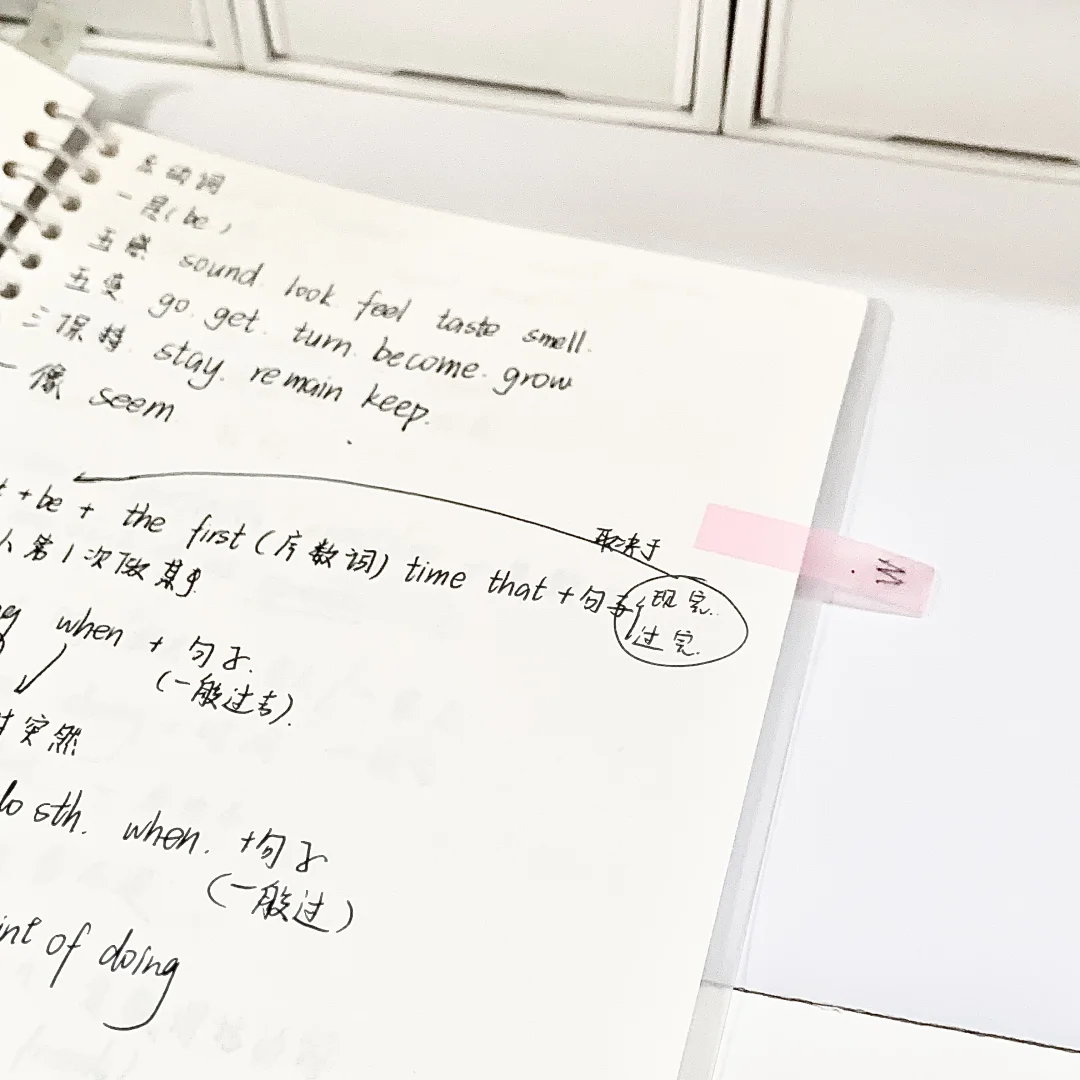 系动词
一是(be)
五感 sound. look. feel taste smell.
五变 go. get. turn. become. grow
三保持. stay. remain keep.
一像 seem
取决于
t + be + the first (序数词) time that + 句子 (现完.
过完.
人第1次做某事.
when + 句子.
(一般过去).
突然
do sth. when. + 句子
(一般过)
int of doing
W